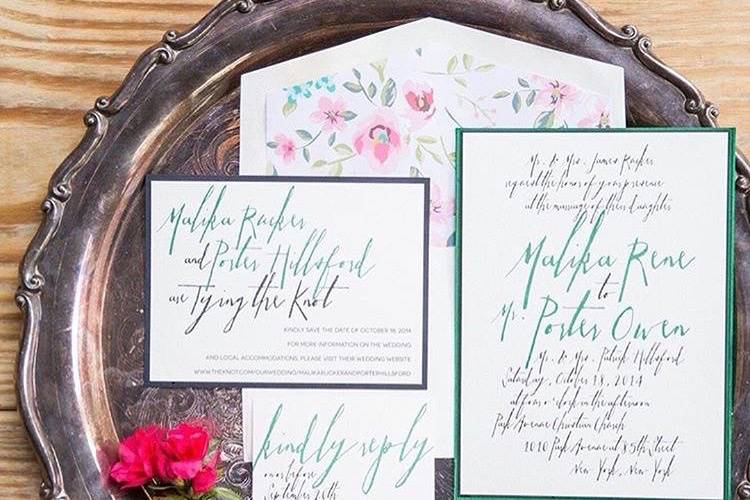 Malika Rucker
and Porter Hillsford
are Tying the Knot
KINDLY SAVE THE DATE OF OCTOBER 18, 2014
FOR MORE INFORMATION ON THE WEDDING
AND LOCAL ACCOMMODATIONS, PLEASE VISIT THEIR WEDDING WEBSITE
WWW.THEKNOT.COM/OURWEDDING/MALIKARUCKERANDPORTERHILLSFORD
kindly reply
on or before
September 20th
Mr. & Mrs. James Rucker
request the honor of your presence
at the marriage of their daughter
Malika Rene
to
Mr. Porter Owen
Mr. & Mrs. Patrick Hillsford
Saturday, October 18, 2014
at four o'clock in the afternoon
Park Avenue Christian Church
1010 Park Avenue at 85th Street
New York, New York